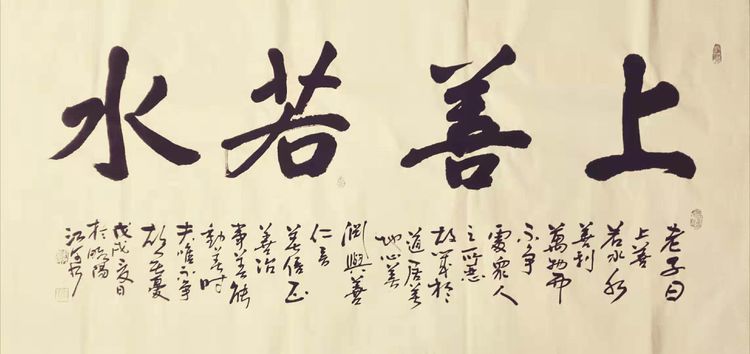 上善若水
老子曰
上善
若水水
善利
萬物而
不争
處衆人
之所惡
故幾於
道居善
地心善
淵與善
仁言
善信正
善治
事善能
動善時
夫唯不争
故無憂
戊戌夏日
於陽